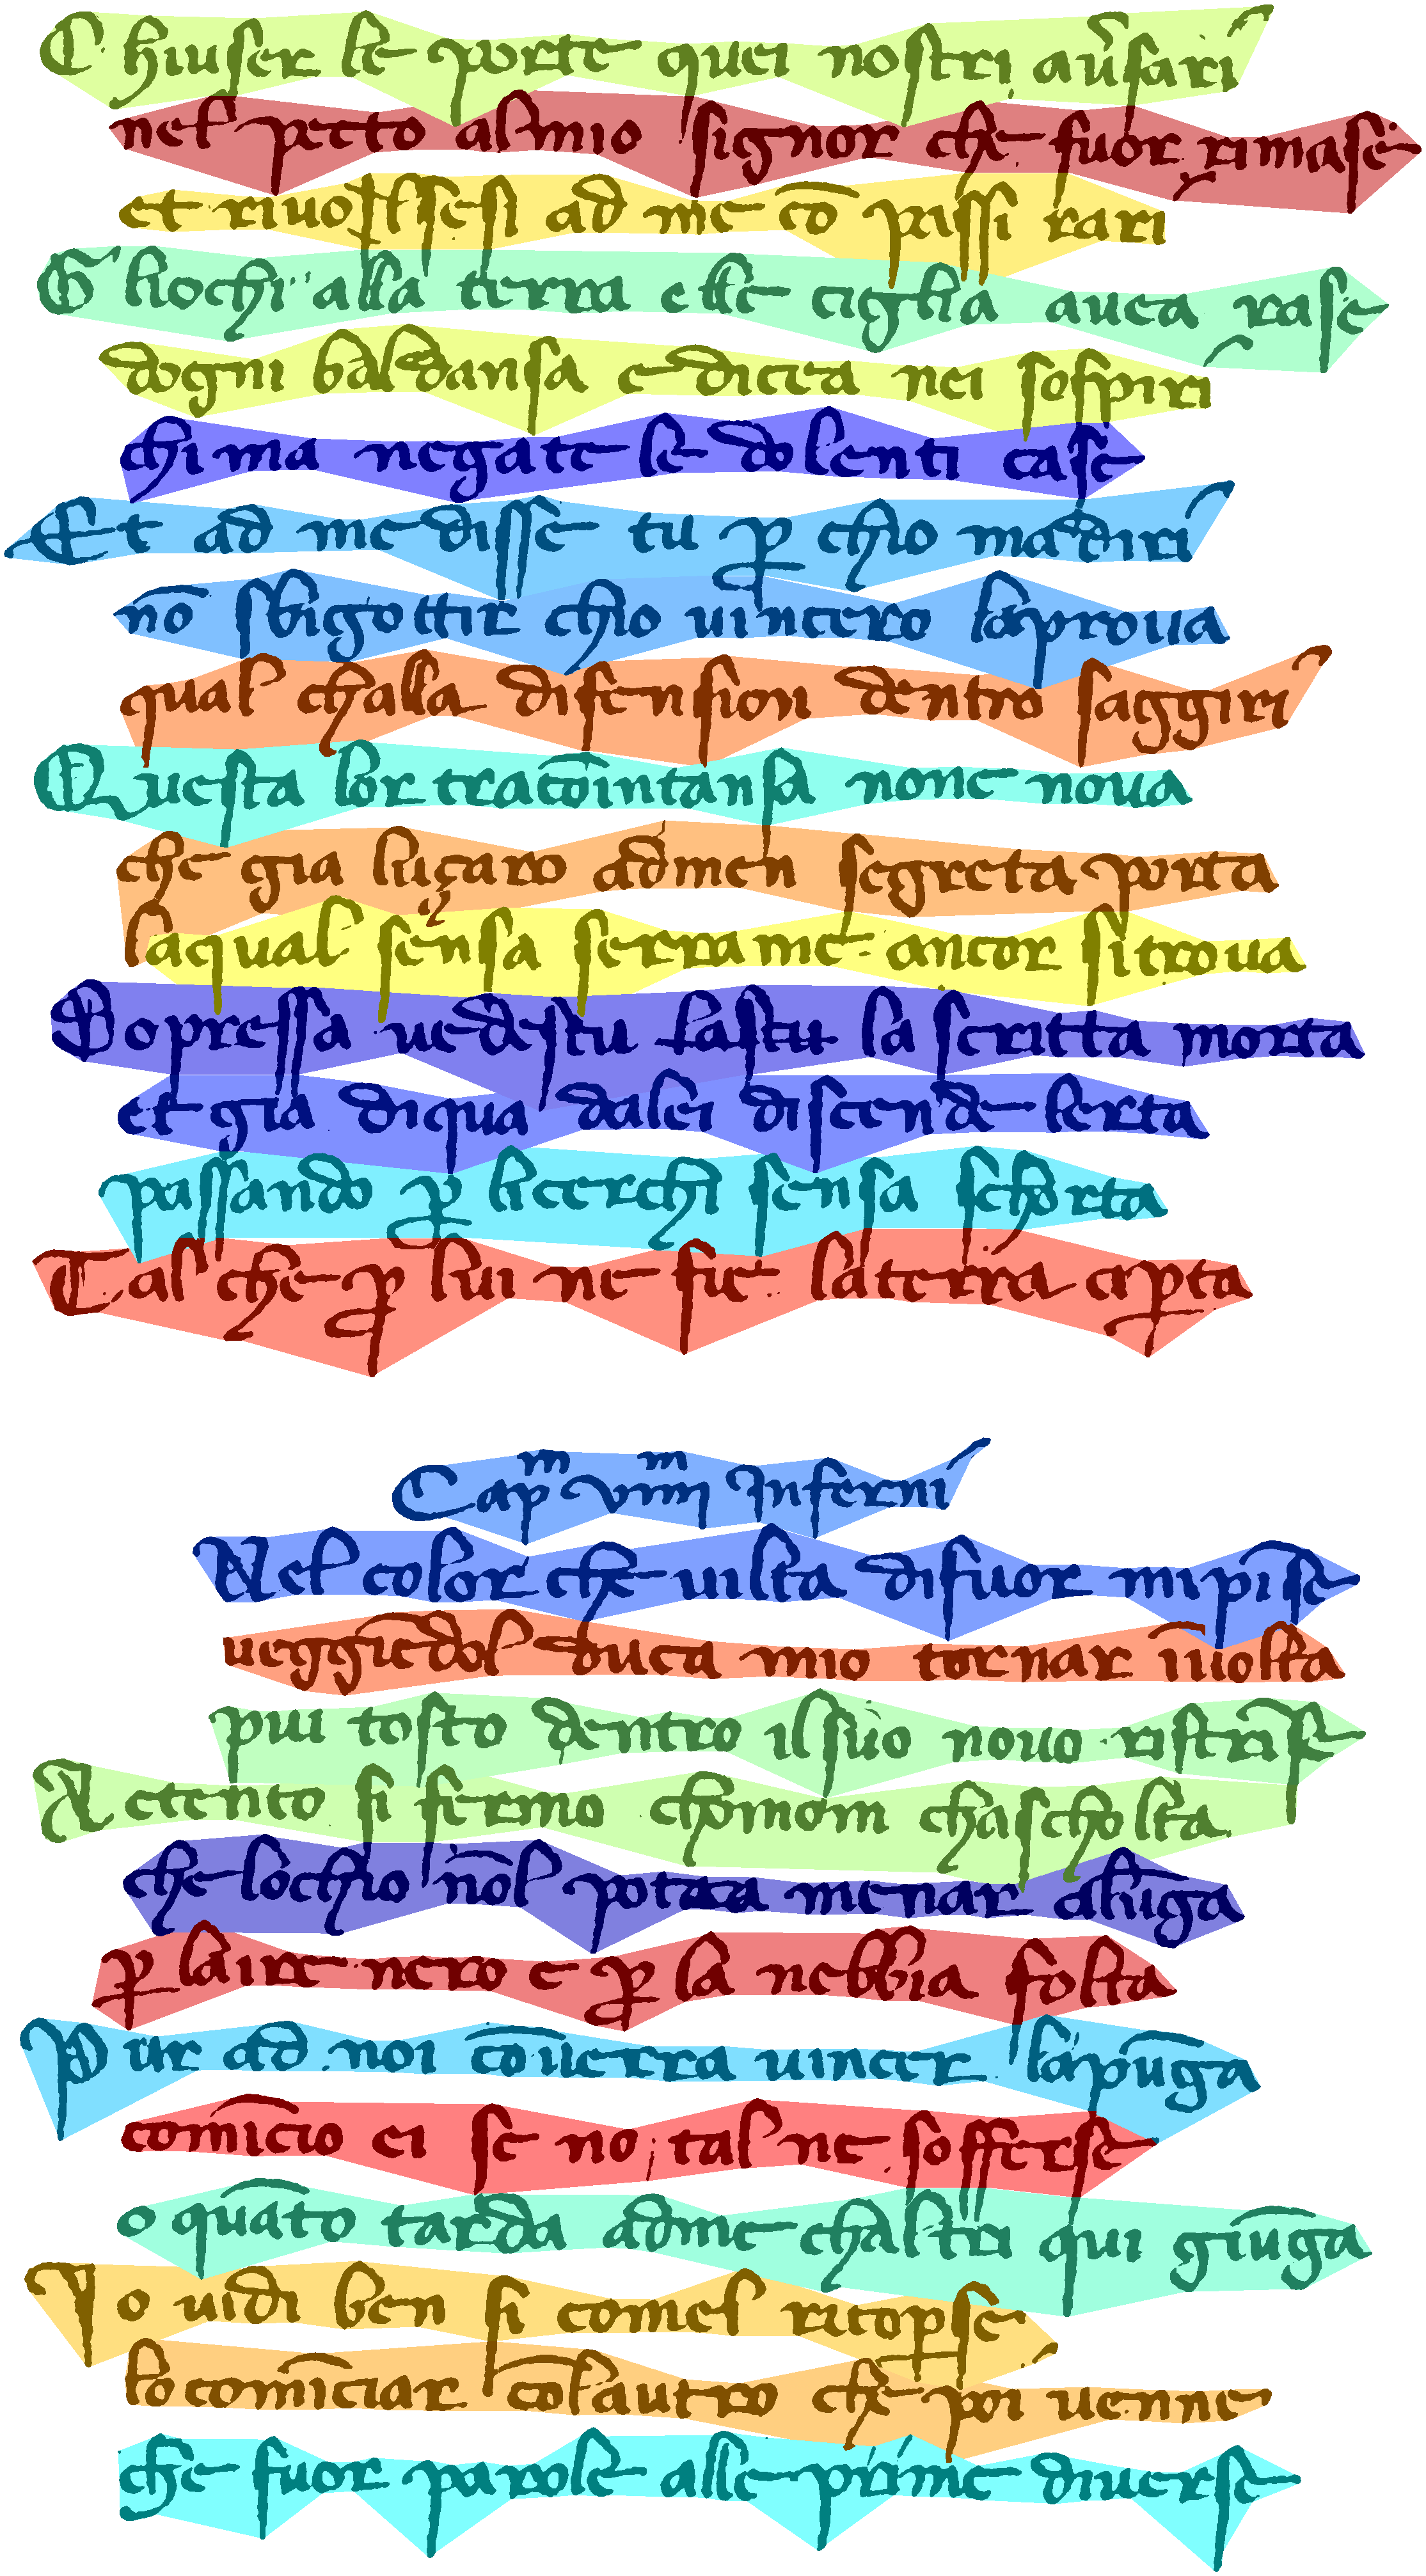 Chiuser le porte quei nostri au͛sari
nel pecto al mio signor che fuor rimase
et riuolsesi ad me cō passi rari
Gliochi alla terra elle ciglia auea rase
dogni baldansa e dicea nei sospiri
chi ma negate le dolenti case
Et ad me disse tu ꝑ chio madiri
nō sbigottir chio uincero laproua
qual challa difension dentro saggiri
Questa lor tracōintansa none noua
che gia luçaro ad men segreta porta
laqual sensa serrame ancor si troua
Sopressa uedestu la scritta morta
et gia diqua dalei discende lerta
passando ꝑ licerchi sensa schorta
Tal che ꝑ lui ne fie laterra aꝑta
Capᵐ VIIIIᵐ Inferni
Nel color che uilta difuor mipīse
ueggiēdol duca mio tornar īuolta
piu tosto dentro il suo nouo ristrīse
Actento si fermo chomom chascholta
che lochio nōl potea menar alūga
ꝑ laire nero e ꝑ la nebbia folta
Pur ad noi cōuerra uincer la pūga
comīcio ei se no tal ne sofferse
o quāto tarda adme chaltri qui giūga
Io uidi ben si comel ricoꝑse
lo comīciar cōlautro che poi uenne
che fuor parole alle prime diuerse